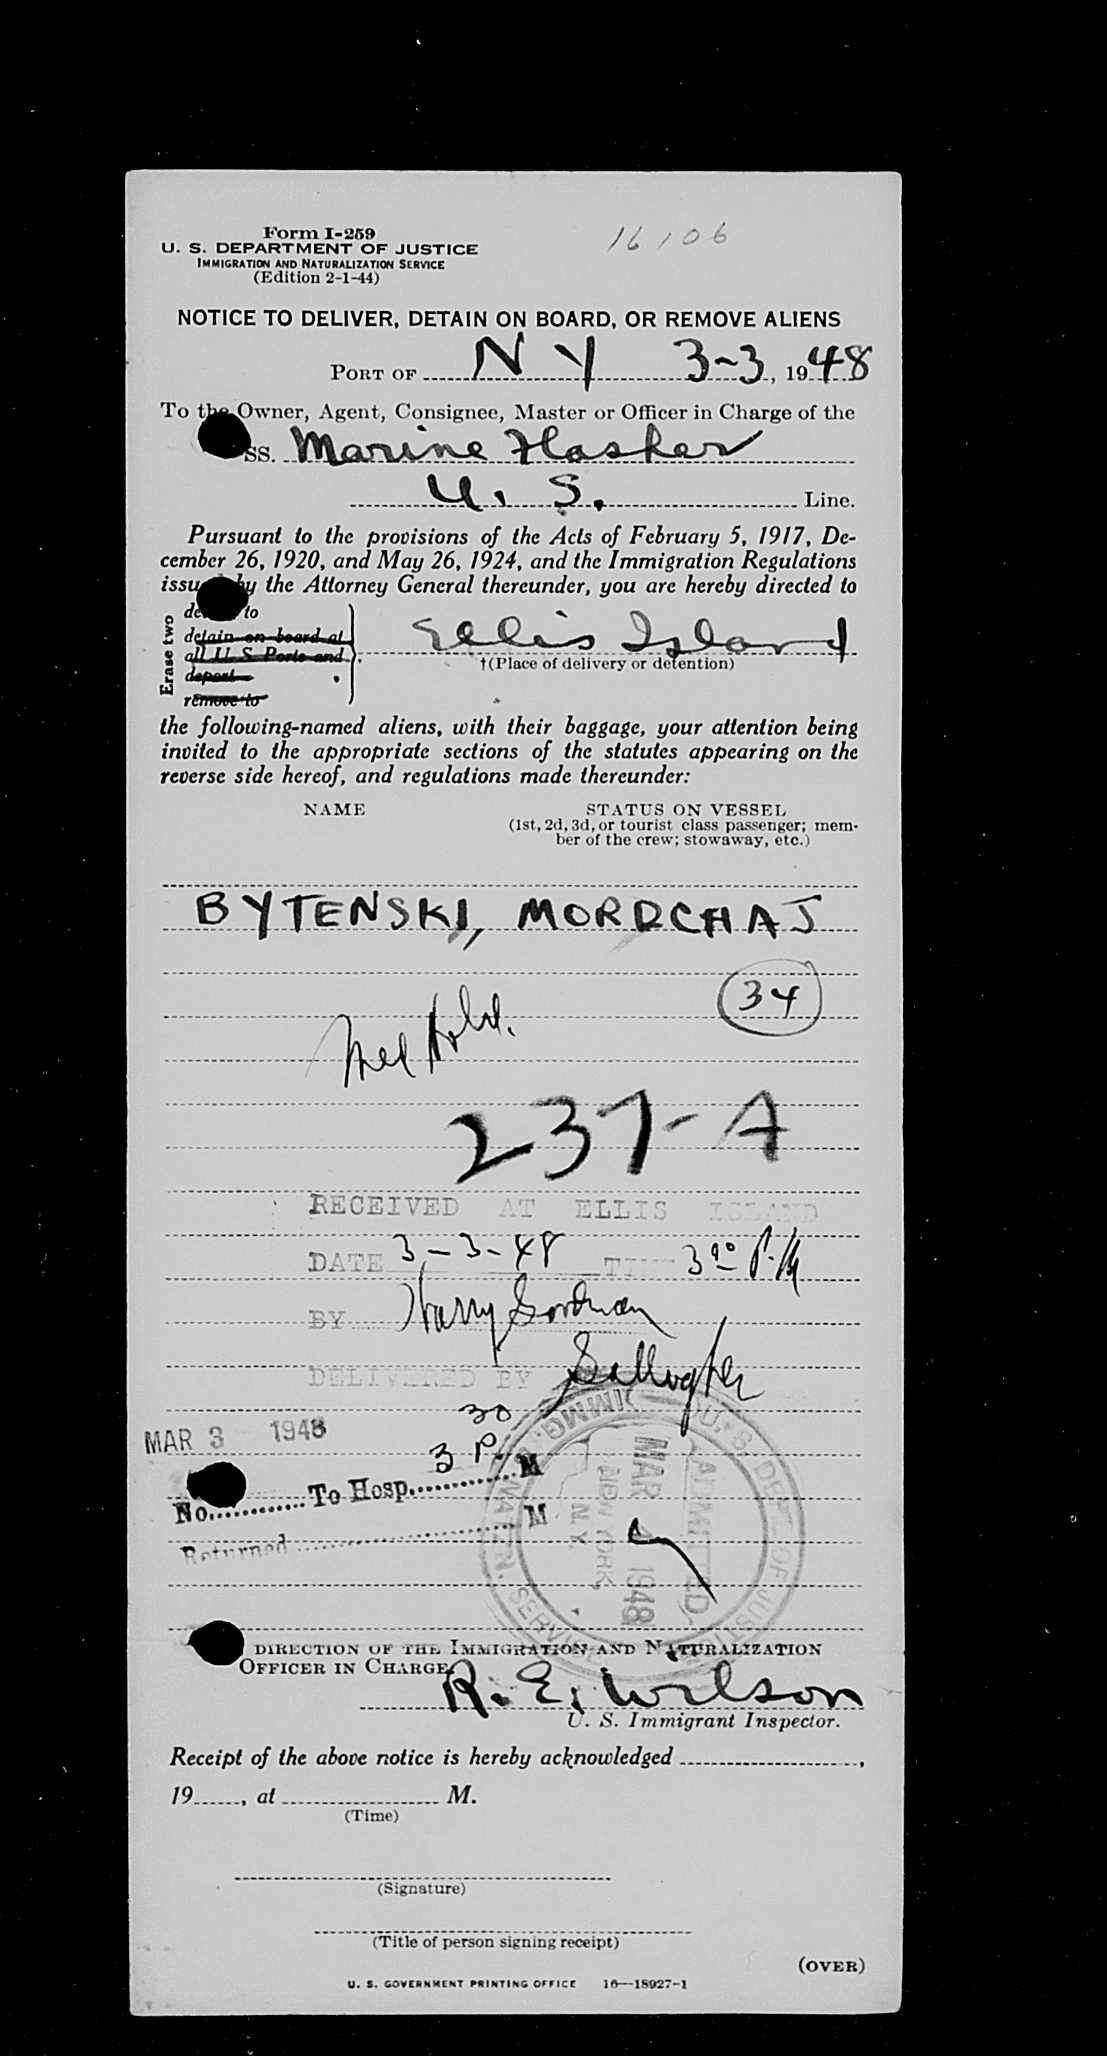 Form I-259
U. S. DEPARTMENT OF JUSTICE
IMMIGRATION AND NATURALIZATION SERVICE
(Edition 2-1-44)
16106
NOTICE TO DELIVER, DETAIN ON BOARD, OR REMOVE ALIENS
PORT OF N Y 3-3, 1948
To the Owner, Agent, Consignee, Master or Officer in Charge of the
SS. Marine Flasher
U. S. Line.
Pursuant to the provisions of the Acts of February 5, 1917, De-
cember 26, 1920, and May 26, 1924, and the Immigration Regulations
issued by the Attorney General thereunder, you are hereby directed to
Erase two
to
detain on board at
all U. S. Ports and
deport
remove to
Ellis Island
†(Place of delivery or detention)
the following-named aliens, with their baggage, your attention being
invited to the appropriate sections of the statutes appearing on the
reverse side hereof, and regulations made thereunder:
NAME STATUS ON VESSEL
(1st, 2d, 3d, or tourist class passenger; mem-
ber of the crew; stowaway, etc.)
BYTENSKI, MORDCHAJ
34
Med Hold.
237-A
RECEIVED AT ELLIS ISLAND
DATE 3-3-48 TI 3 P.M
BY Harry Goodman
DELIVERED BY Gallagher
MAR 3 1948
No. To Hosp. 3 30 P. M
Returned M
U. S. DEPT. OF JUSTICE
IMMIG. & NATZ'N. SERVICE
ADMITTED
MAR 4 1948
NEW YORK, N. Y.
DIRECTION OF THE IMMIGRATION AND NATURALIZATION
OFFICER IN CHARGE.
R. E. Wilson
U. S. Immigrant Inspector.
Receipt of the above notice is hereby acknowledged ,
19 , at M.
(Time)
(Signature)
(Title of person signing receipt)
(OVER)
U. S. GOVERNMENT PRINTING OFFICE 16—18927-1